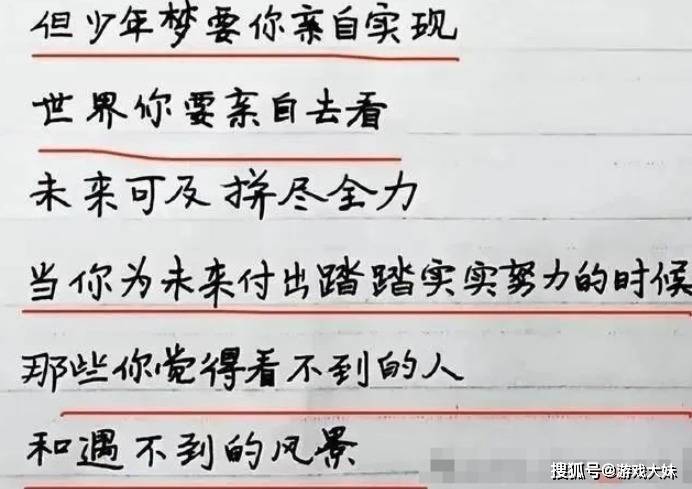 但少年梦要你亲自实现
世界你要亲自去看
未来可及拼尽全力
当你为未来付出踏踏实实努力的时候
那些你觉得看不到的人
和遇不到的风景
搜狐号@游戏大妹